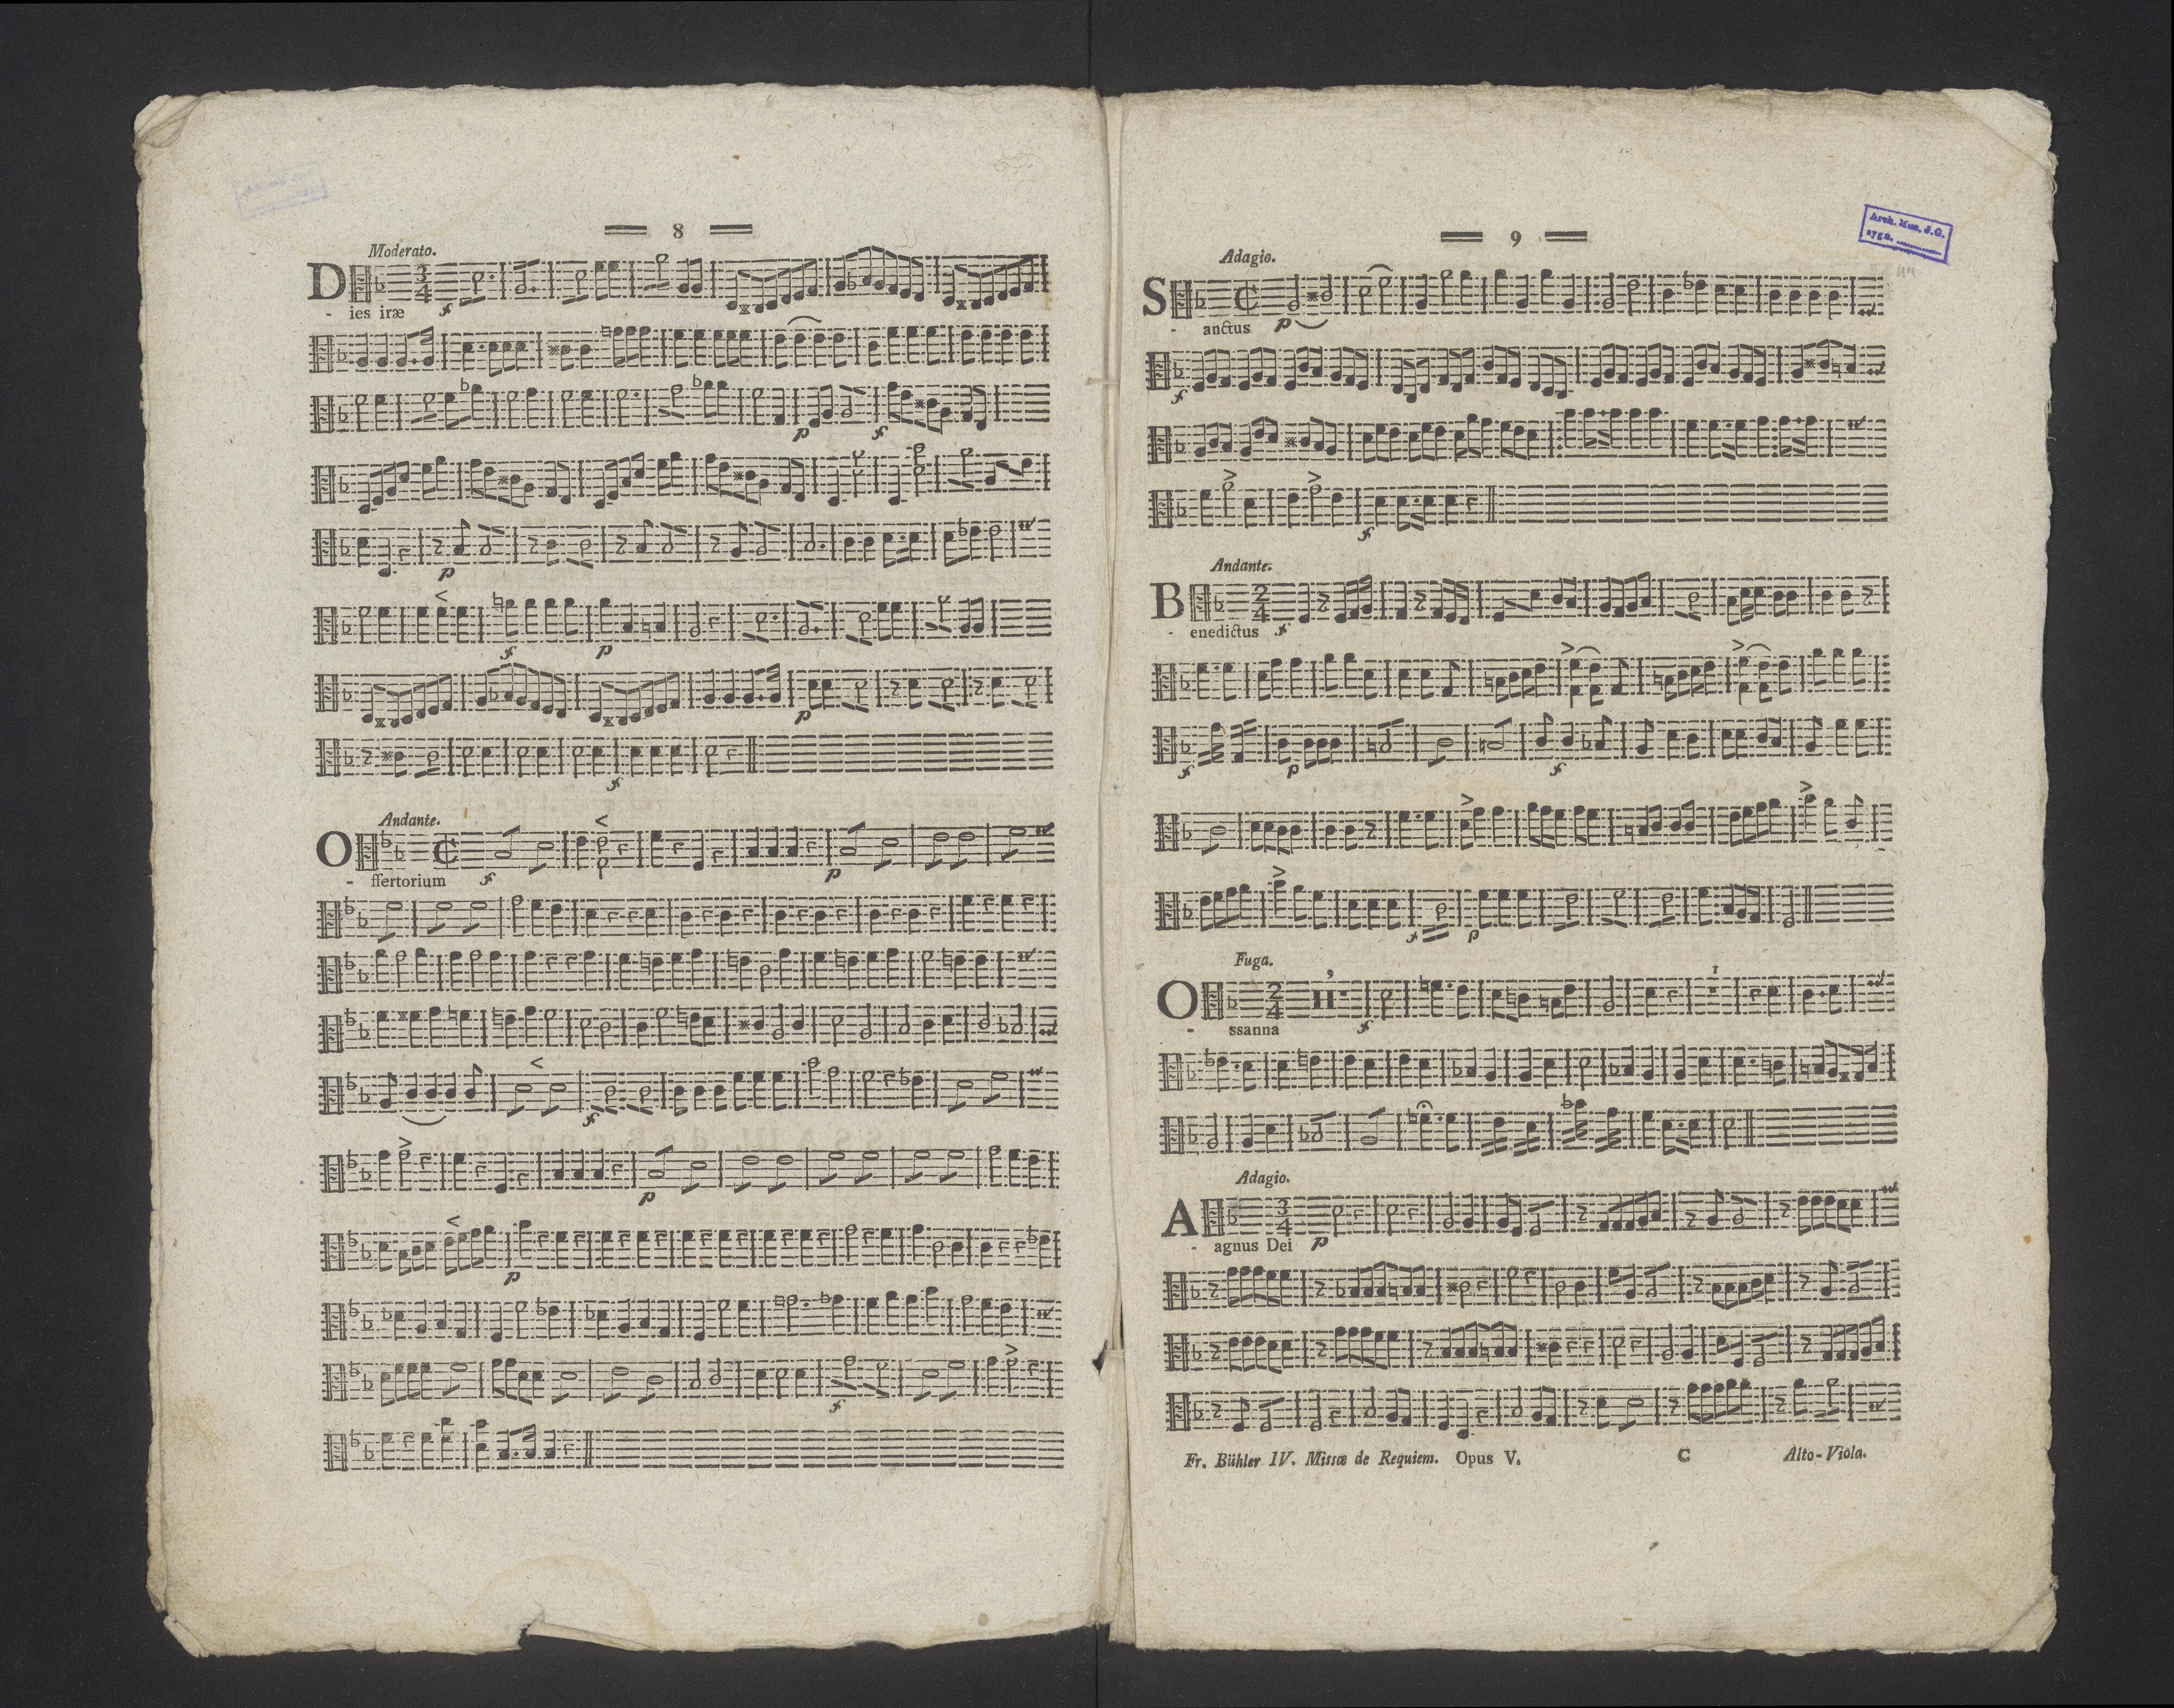 8
Moderato.
D-ies iræ
Andante.
O-ffertorium
9
Arch. Mus. J.G.
sygn.
44
Adagio.
S-anctus
Andante.
B-enedictus
Fuga.
O-ssanna
Adagio.
A-agnus Dei
Fr. Bühler IV. Missæ de Requiem. Opus V. C Alto-Viola.